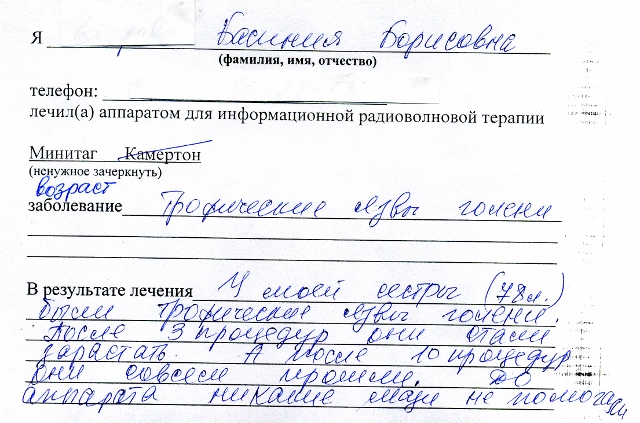 Я Ксения Борисовна
(фамилия, имя, отчество)
телефон:
лечил(а) аппаратом для информационной радиоволновой терапии
Минитаг Камертон
(ненужное зачеркнуть)
возраст
заболевание Трофические язвы голени
В результате лечения У моей сестры (78л.)
были трофические язвы голени.
После 3 процедур они стали
зарастать. А после 10 процедур
они совсем прошли. До
аппарата никакие мази не помогали